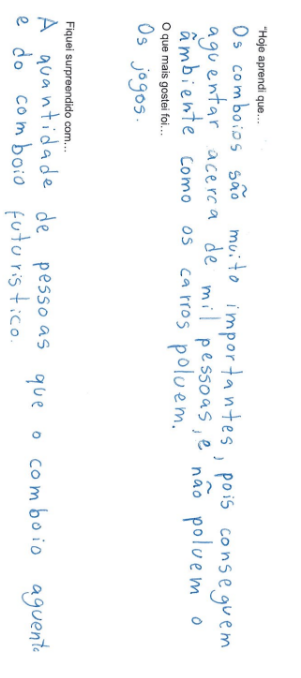 "Hoje aprendi que...
Os comboios são muito importantes, pois conseguem
aguentar acerca de mil pessoas, e não poluem o
âmbiente como os carros poluem.
O que mais gostei foi...
Os jogos.
Fiquei surpreendido com...
A quantidade de pessoas que o comboio aguenta
e do comboio futuristico.